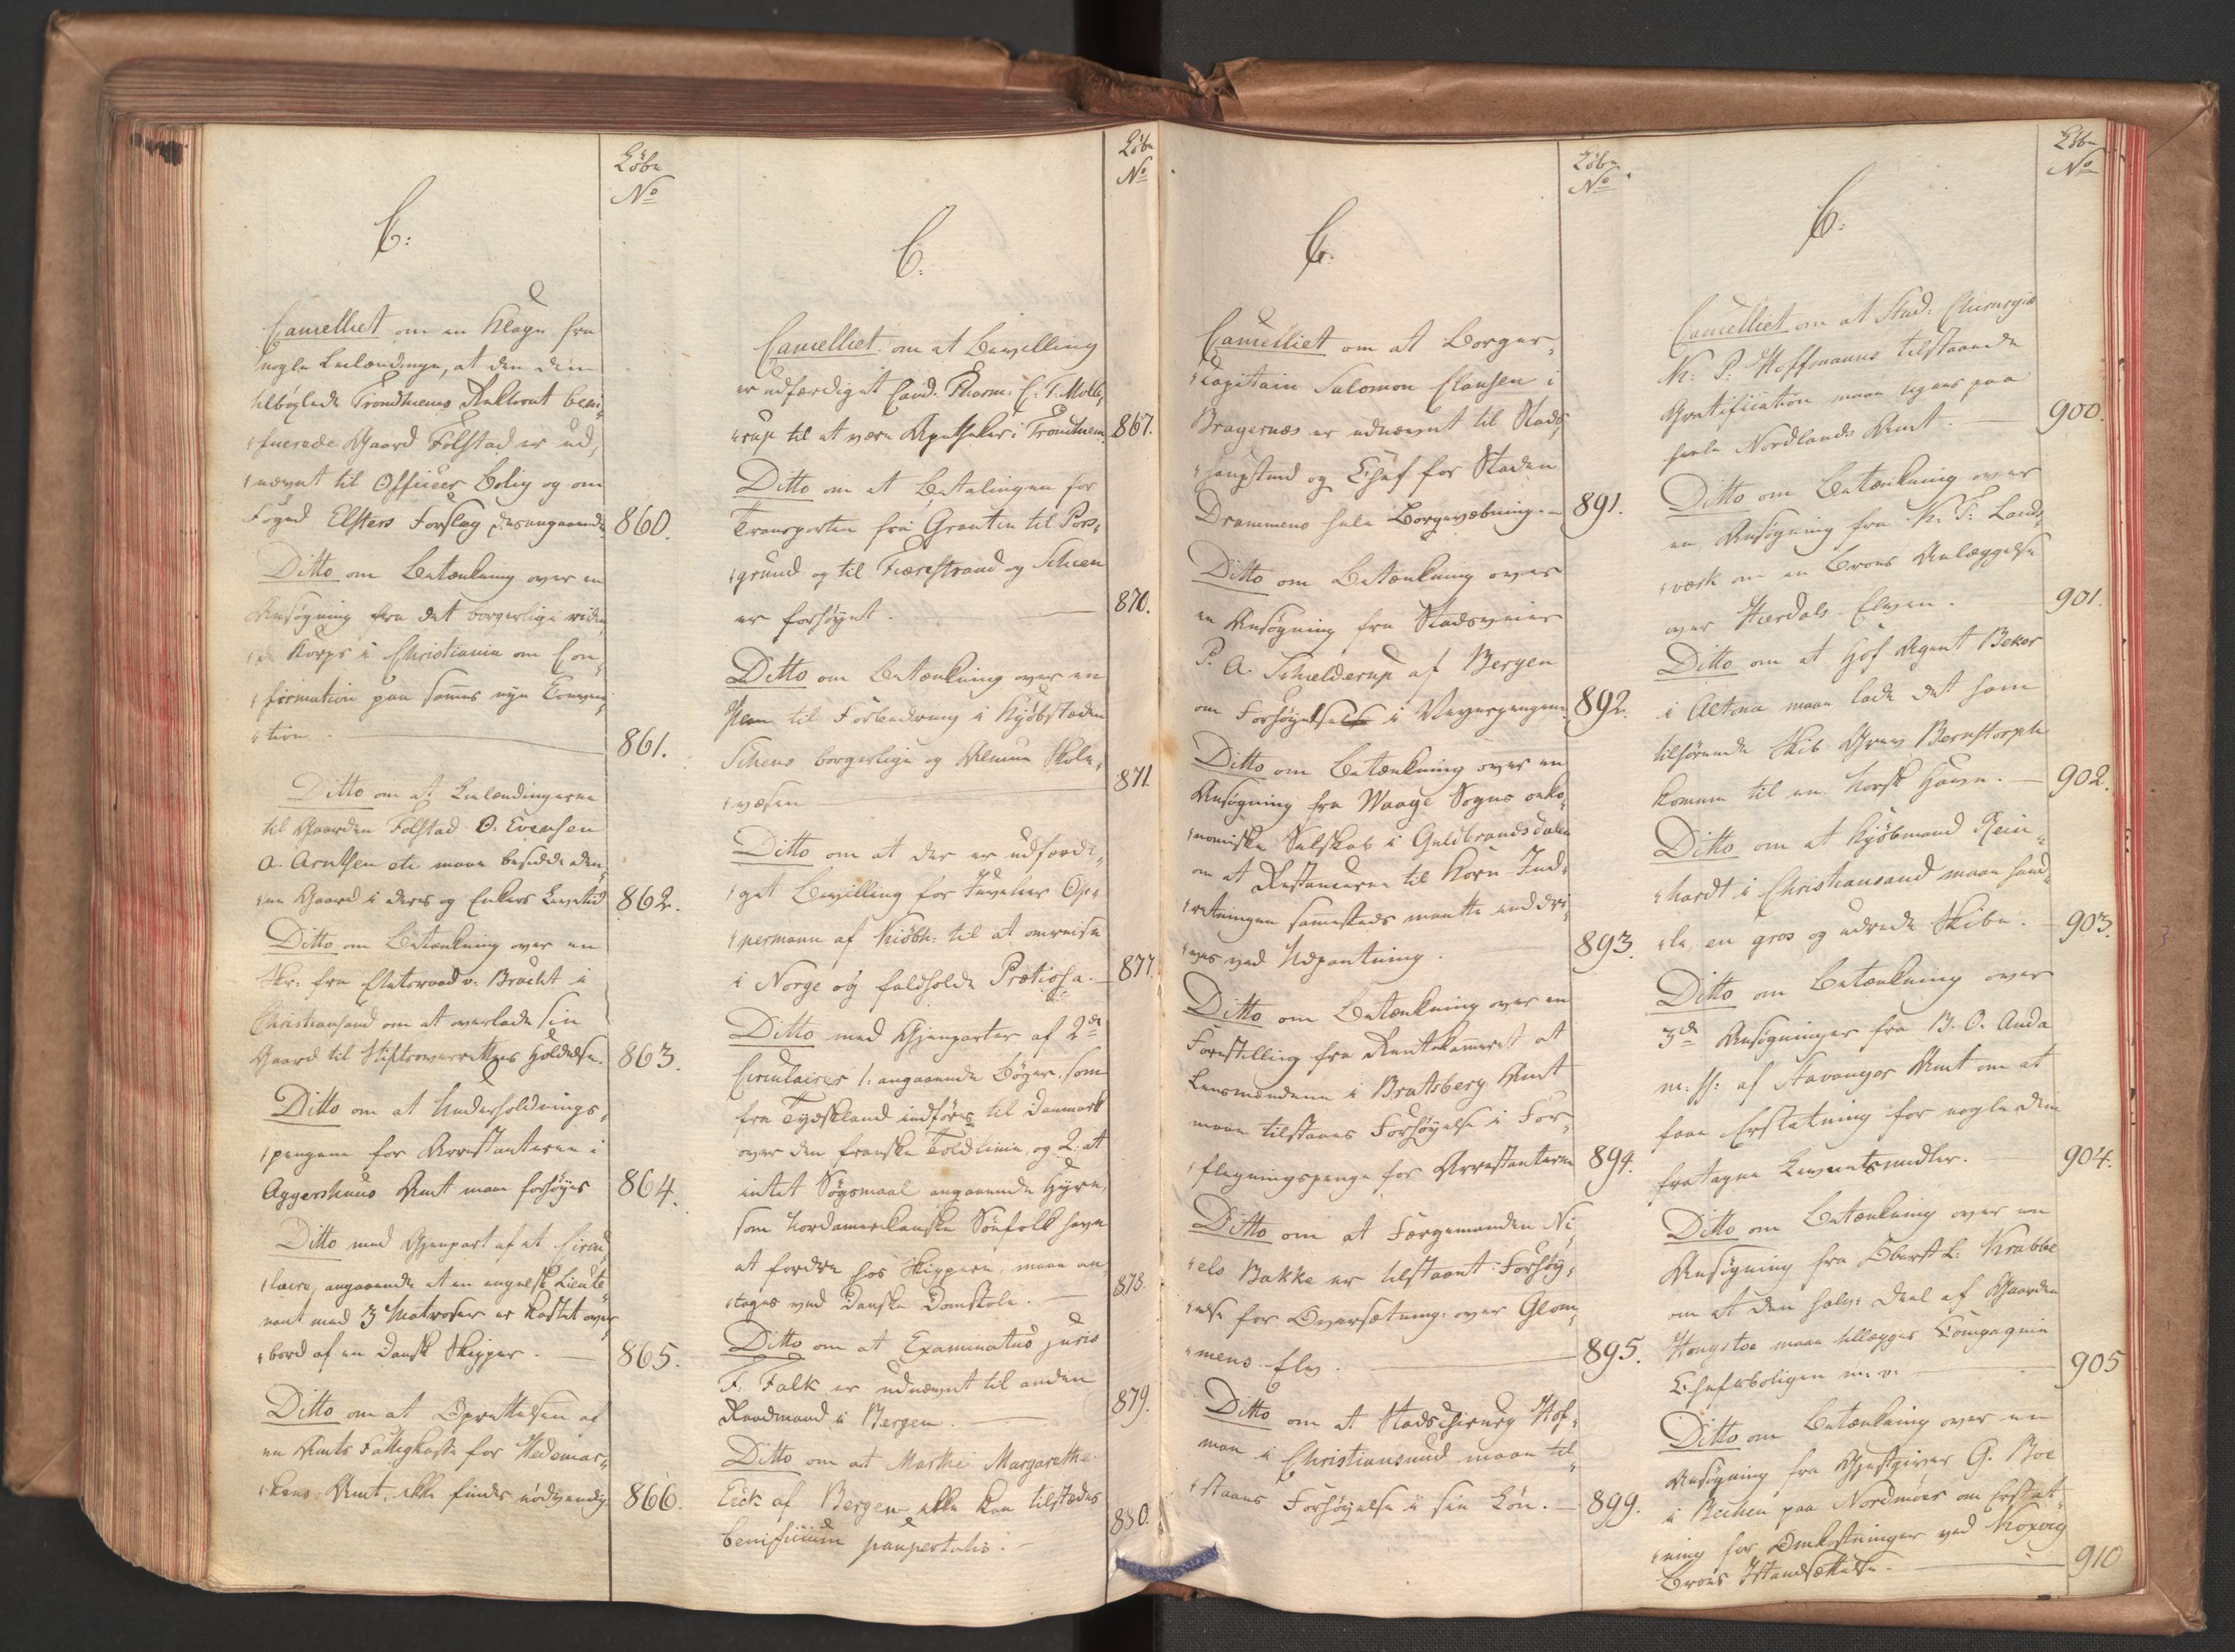 Løbe
No
C:
Cancelliet om en Klage fra
nogle Leilændinge, at den dem
tilbøxlede Trondhiems Rektorat beni-
ficerede Gaard Folstad er ud-
nævnt til Officeer Bolig og om
Foged Elsters Forslag desangaaende
860.
Ditto om Betænkning over en
Ansøgning fra det borgerlige riden-
de Korps i Christiania om Con-
firmation paa sammes nye Conven-
tion.
861.
Ditto om at Leilændingerne
til Gaarden Folstad O. Evensen
A. Arntsen etc. maae besidde den-
ne Gaard i deres og Enkers Levetid
862.
Ditto om Betænkning over en
Skr. fra Etatsraad v. Bracht i
Christiansand om at overlade sin
Gaard til Stiftsoverrettens Holdelse.
863.
Ditto om at Underholdnings-
pengene for Arrestanterne i
Aggershuus Amt maae forhøyes
864.
Ditto med Gjenpart af et Circu-
laire, angaaende at en engelsk Lieute-
nant med 3 Matroser er kastet over
bord af en dansk Skipper.
865.
Ditto om at Oprettelsen af
en Amts Fattigkasse for Hedemar-
kens Amt, ikke findes nødvendig
866.
Løbe
No
C.
Cancelliet om at Bevilling
er udfærdiget Cand. Pharm: C. T. Molle-
rup til at være Apotheker i Trondhiem.
867.
Ditto om at Betalingen for
Transporten fra Grantin til Pors-
grund og til Fierestrand og Schien
er forhøyet.
870.
Ditto om Betænkning over en
Plan til Forbedring i Kjøbstæden
Schiens borgerlige og Almue Skole-
væsen
871.
Ditto om at der er udfærdi-
get Bevilling for Juveleer Op-
permann af Kiøbh: til at omreise
i Norge og falholde Prætiosa.
877.
Ditto med Gjenparter af 2de
Circulairer 1. angaaende Bøger, som
fra Tydskland indføres til Danmark
over den franske Toldlinie, og 2. at
intet Søgsmaal angaaende Hyre,
som Nordamerikanske Søefolk have
at fordre hos Skippere, maae an-
tages ved Danske Domstole.
878.
Ditto om at Examinatus juris
F: Falk er udnævnt til anden
Raadmand i Bergen.
879.
Ditto om at Marthe Margarethe
Eeck af Bergen ikke kan tilstædes
benificium paupertatis.
880.
Løbe
No
C.
Cancelliet om at Borger-
capitain Salomon Clausen i
Bragernæs er udnævnt til Stads-
hauptmd og Chef for Staden
Drammens hele Borgevæbning.
891.
Ditto om Betænkning over
en Ansøgning fra Stadsveier
P. A. Schielderup af Bergen
om Forhøyelse i Veyerpengene
892.
Ditto om Betænkning over en
Ansøgning fra Waage Sogns oeko-
nomiske Selskab i Guldbrandsdalen
om at Restancerne til Korn Ind-
retningen sammesteds maatte inddri-
ves ved Udpantning.
893.
Ditto om Betænkning over en
Forestilling fra Rentekammeret at
Lensmændene i Bratsberg Amt
maae tilstaaes Forhøyelse i For-
flegningspenge for Arrestanterne
894.
Ditto om at Færgemanden Ni-
els Bakke er tilstaaet Forhøy-
else for Oversætning over Glom-
mens Elv.
895.
Ditto om at Stadschirurg Hof-
man i Christiansund maae til-
staaes Forhøyelse i sin Løn.
899.
Løbe
No
C:
Cancelliet om at Stud: Chirurgiæ
N: P: Hoffmanns tilstaaede
Gratification maae lignes paa
heele Nordlands Amt.
900.
Ditto om Betænkning over
en Ansøgning fra N: F: Lands-
værk om en Broes Anlæggelse
over Hierdals Elven.
901.
Ditto om at Hof Agent Beker
i Altona maae lade det ham
tilhørende Skib Grev Bernstorph
komme til en norsk Havn.
902.
Ditto om at Kjøbmand Rein-
hardt i Christiansand maae hand-
le en gros og udrede Skibe.
903.
Ditto om Betænkning over
3de Ansøgninger fra B. O. Anda
m: fl: af Stavanger Amt om at
faae Erstatning for nogle dem
fratagne Levnetsmidler.
904.
Ditto om Betænkning over en
Ansøgning fra Oberst L: Krabbe
om at den halve Deel af Gaarden
Hougstoe maae tillægges Compagnie
Chefsboligen m: v:
905
Ditto om Betænkning over en
Ansøgning fra Gjestgiver G. Boe
i Beehen paa Nordmøer om Erstat-
ning for Omkostninger ved Korvig
Broes Istandsættelse.
910